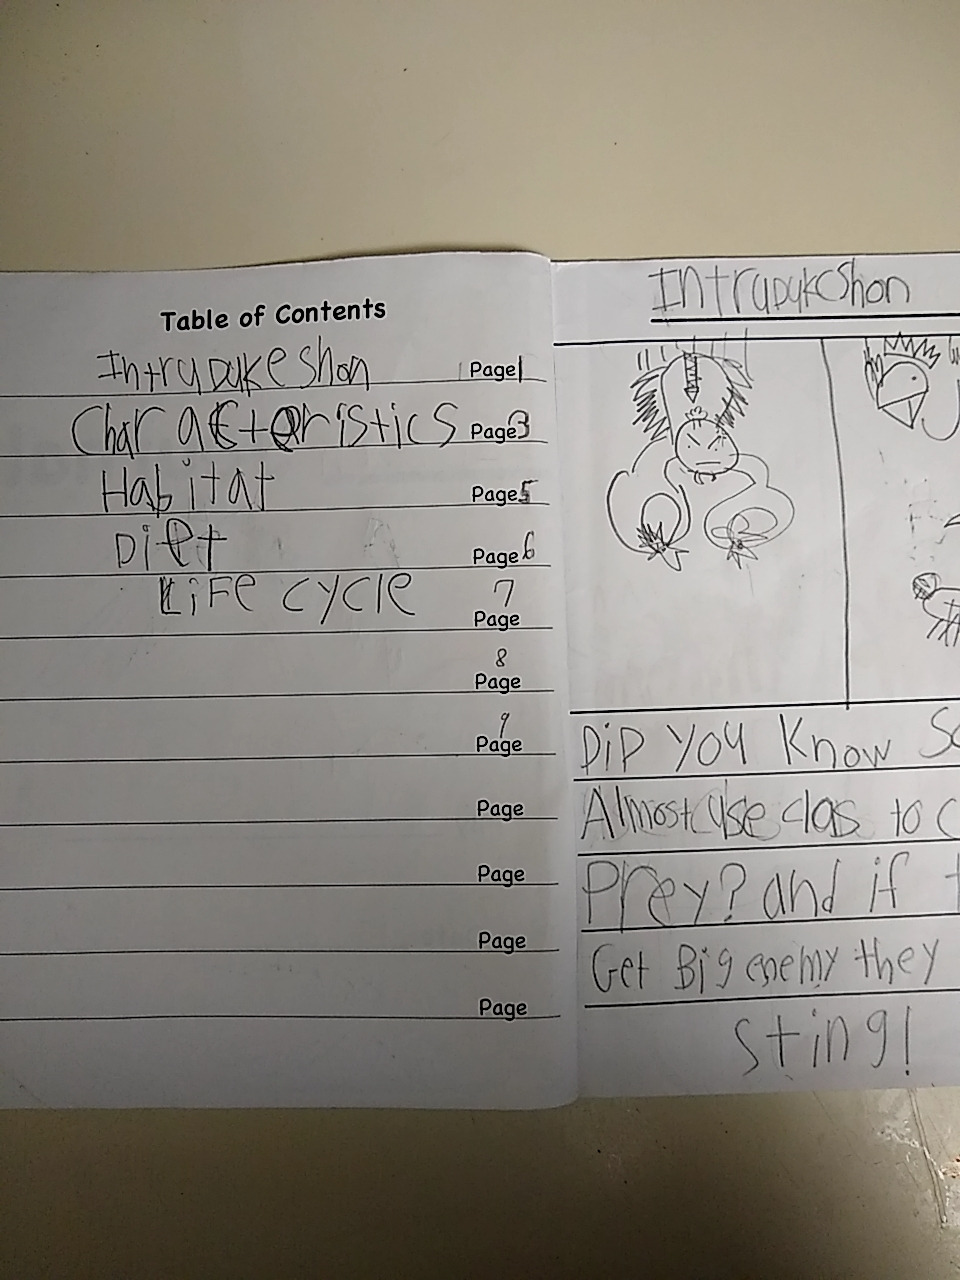 Table of Contents
Intrudukeshon Page 1
Characteristics Page 3
Habitat Page 5
Diet Page 6
Life cycle Page 7
Page 8
Page 9
Page
Page
Page
Page
Intrudukeshon
DiD you Know
Almost use clas to
Prey? and if
Get Big enemy they
sting!